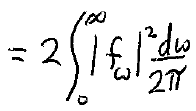 = 2 ∫₀^∞ |f_ω|² dω/2π